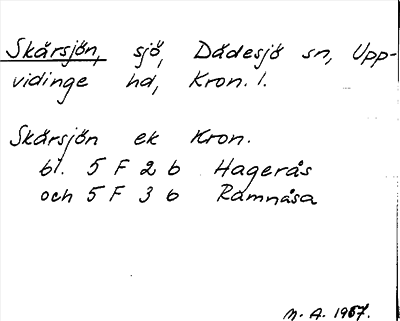 Skärsjön, sjö, Dädesjö sn, Upp-
vidinge hd, Kron. l.
Skärsjön ek Kron.
bl. 5 F 2 b Hagerås
och 5 F 3 b Ramnåsa
M. A. 1967.